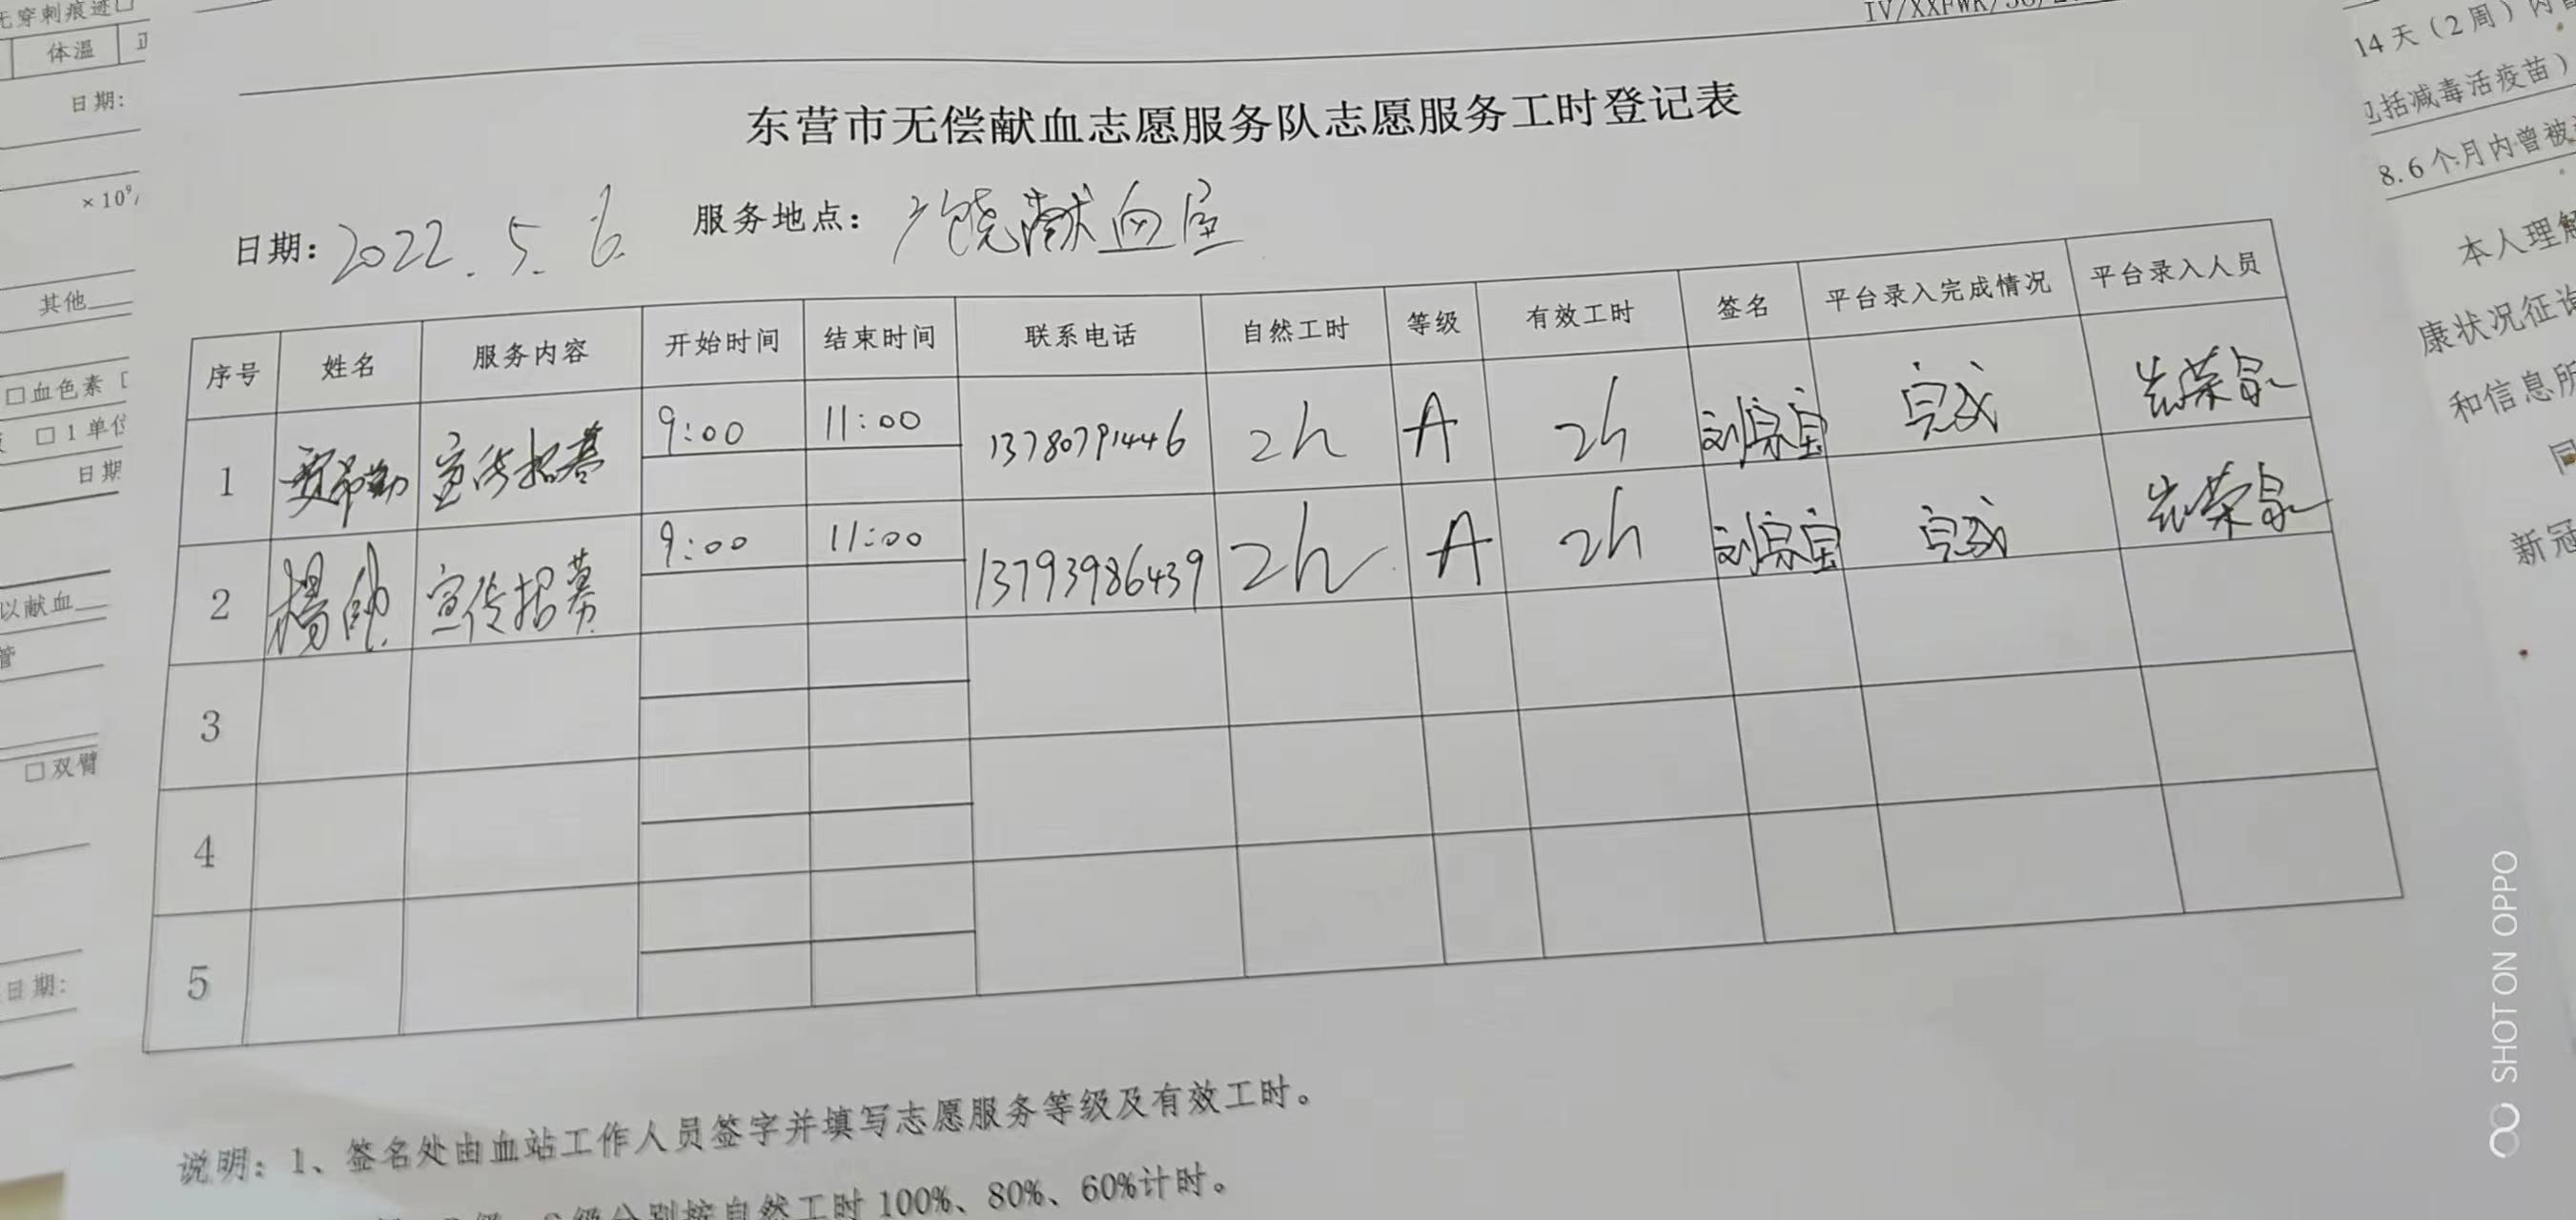 无穿刺痕迹□
体温
日期:
×10⁹/
其他
□血色素
□1单位
日期
以献血
管
□双臂
日期:
IV/XXFWK/
东营市无偿献血志愿服务队志愿服务工时登记表
日期: 2022.5.6. 服务地点: 广饶献血屋
序号 姓名 服务内容 开始时间 结束时间 联系电话 自然工时 等级 有效工时 签名 平台录入完成情况 平台录入人员
1 宣传招募 9:00 11:00 13780791446 2h A 2h 刘宗宝 完成 荣泉
2 楊帥 宣传招募 9:00 11:00 13793986439 2h A 2h 刘宗宝 完成 荣泉
3
4
5
说明: 1、签名处由血站工作人员签字并填写志愿服务等级及有效工时。
级分别按自然工时 100%、80%、60%计时。
14天(2周)内
包括减毒活疫苗)
8.6个月内曾被
本人理解
康状况征询
和信息所
同
新冠
SHOT ON OPPO